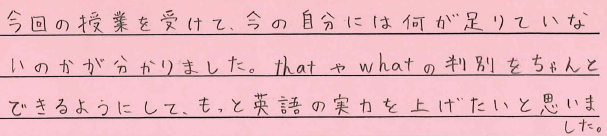 今回の授業を受けて、今の自分には何が足りていな
いのかが分かりました。thatやwhatの判別をちゃんと
できるようにして、もっと英語の実力を上げたいと思いま
した。